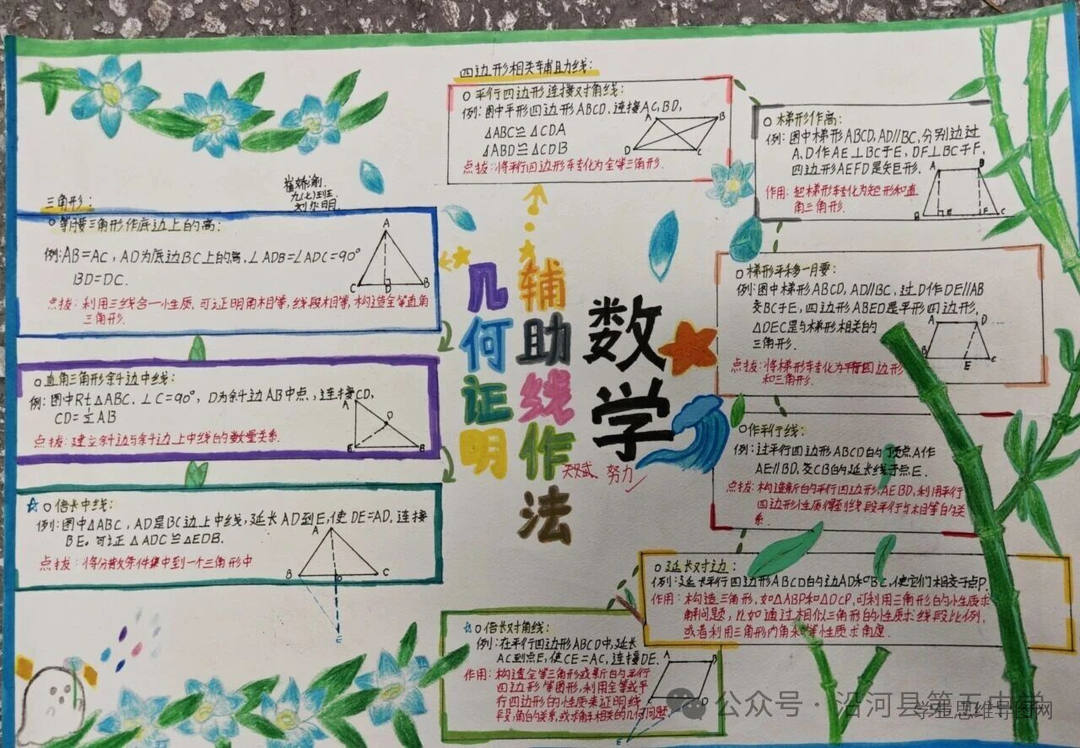 四边形相关辅助线:
○平行四边形连接对角线:
例:图中平形四边形ABCD,连接AC,BD,
△ABC≌△CDA
△ABD≌△CDB
点拔:将平行四边形转化为全等三角形.
A
B
D
C
○梯形作高:
例:图中梯形ABCD,AD//BC,分别过
A、D作AE⊥BC于E,DF⊥BC于F,
四边形AEFD是矩形.
作用:把梯形转化为矩形和直
角三角形.
A
D
B
E
F
C
九(七)班
三角形:
○等腰三角形作底边上的高:
例:AB=AC,AD为底边BC上的高,∠ADB=∠ADC=90°
BD=DC.
点拔:利用三线合一小性质,可证明角相等,线段相等,构造全等直角
三角形.
A
C
D
B
○直角三角形斜边中线:
例:图中Rt△ABC,∠C=90°,D为斜边AB中点,连接CD,
CD=½AB
点拔:建立斜边与斜边上中线的数量关系.
A
D
E
B
☆○倍长中线:
例:图中△ABC,AD是BC边上中线,延长AD到E,使DE=AD,连接
BE,可证△ADC≌△EDB.
点拔:将分散条件集中到一个三角形中
A
B
D
C
E
几何证明
辅助线作法
数学
天赋、努力
○梯形平移一月要:
例:图中梯形ABCD,AD//BC,过D作DE//AB
交BC于E,四边形ABED是平形四边形,
△DEC是与梯形相关的
三角形.
点拔:将梯形转化为平行四边形
和三角形.
A
D
B
E
C
○作平行线:
例:过平行四边形ABCD的顶点A作
AE//BD,交CB的延长线于点E.
点拔:构造新的平行四边形AEBD,利用平行
四边形性质得到线段平行与相等的关
系.
○延长对边:
例:延长平行四边形ABCD的边AD和BC,使它们相交于点P.
作用:构造三角形,如△ABP和△DCP,可利用三角形的性质求
解问题,比如通过相似三角形的性质求线段比例,
或者利用三角形内角和等性质求角度.
☆○倍长对角线:
例:在平行四边形ABCD中,延长
AC到点E,使CE=AC,连接DE.
作用:构造全等三角形或新的平行
四边形等图形,利用全等或平
行四边形的性质来证明线
段,角的关系,或求解相关的几何问题.
A
B
D
E
公众号·沿河县第五中学
学霸思维导图网